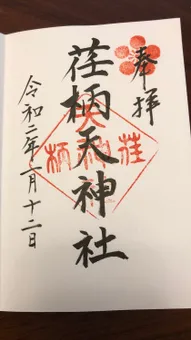 奉拝
荏柄天神社
令和二年 月十二日
荏
柄